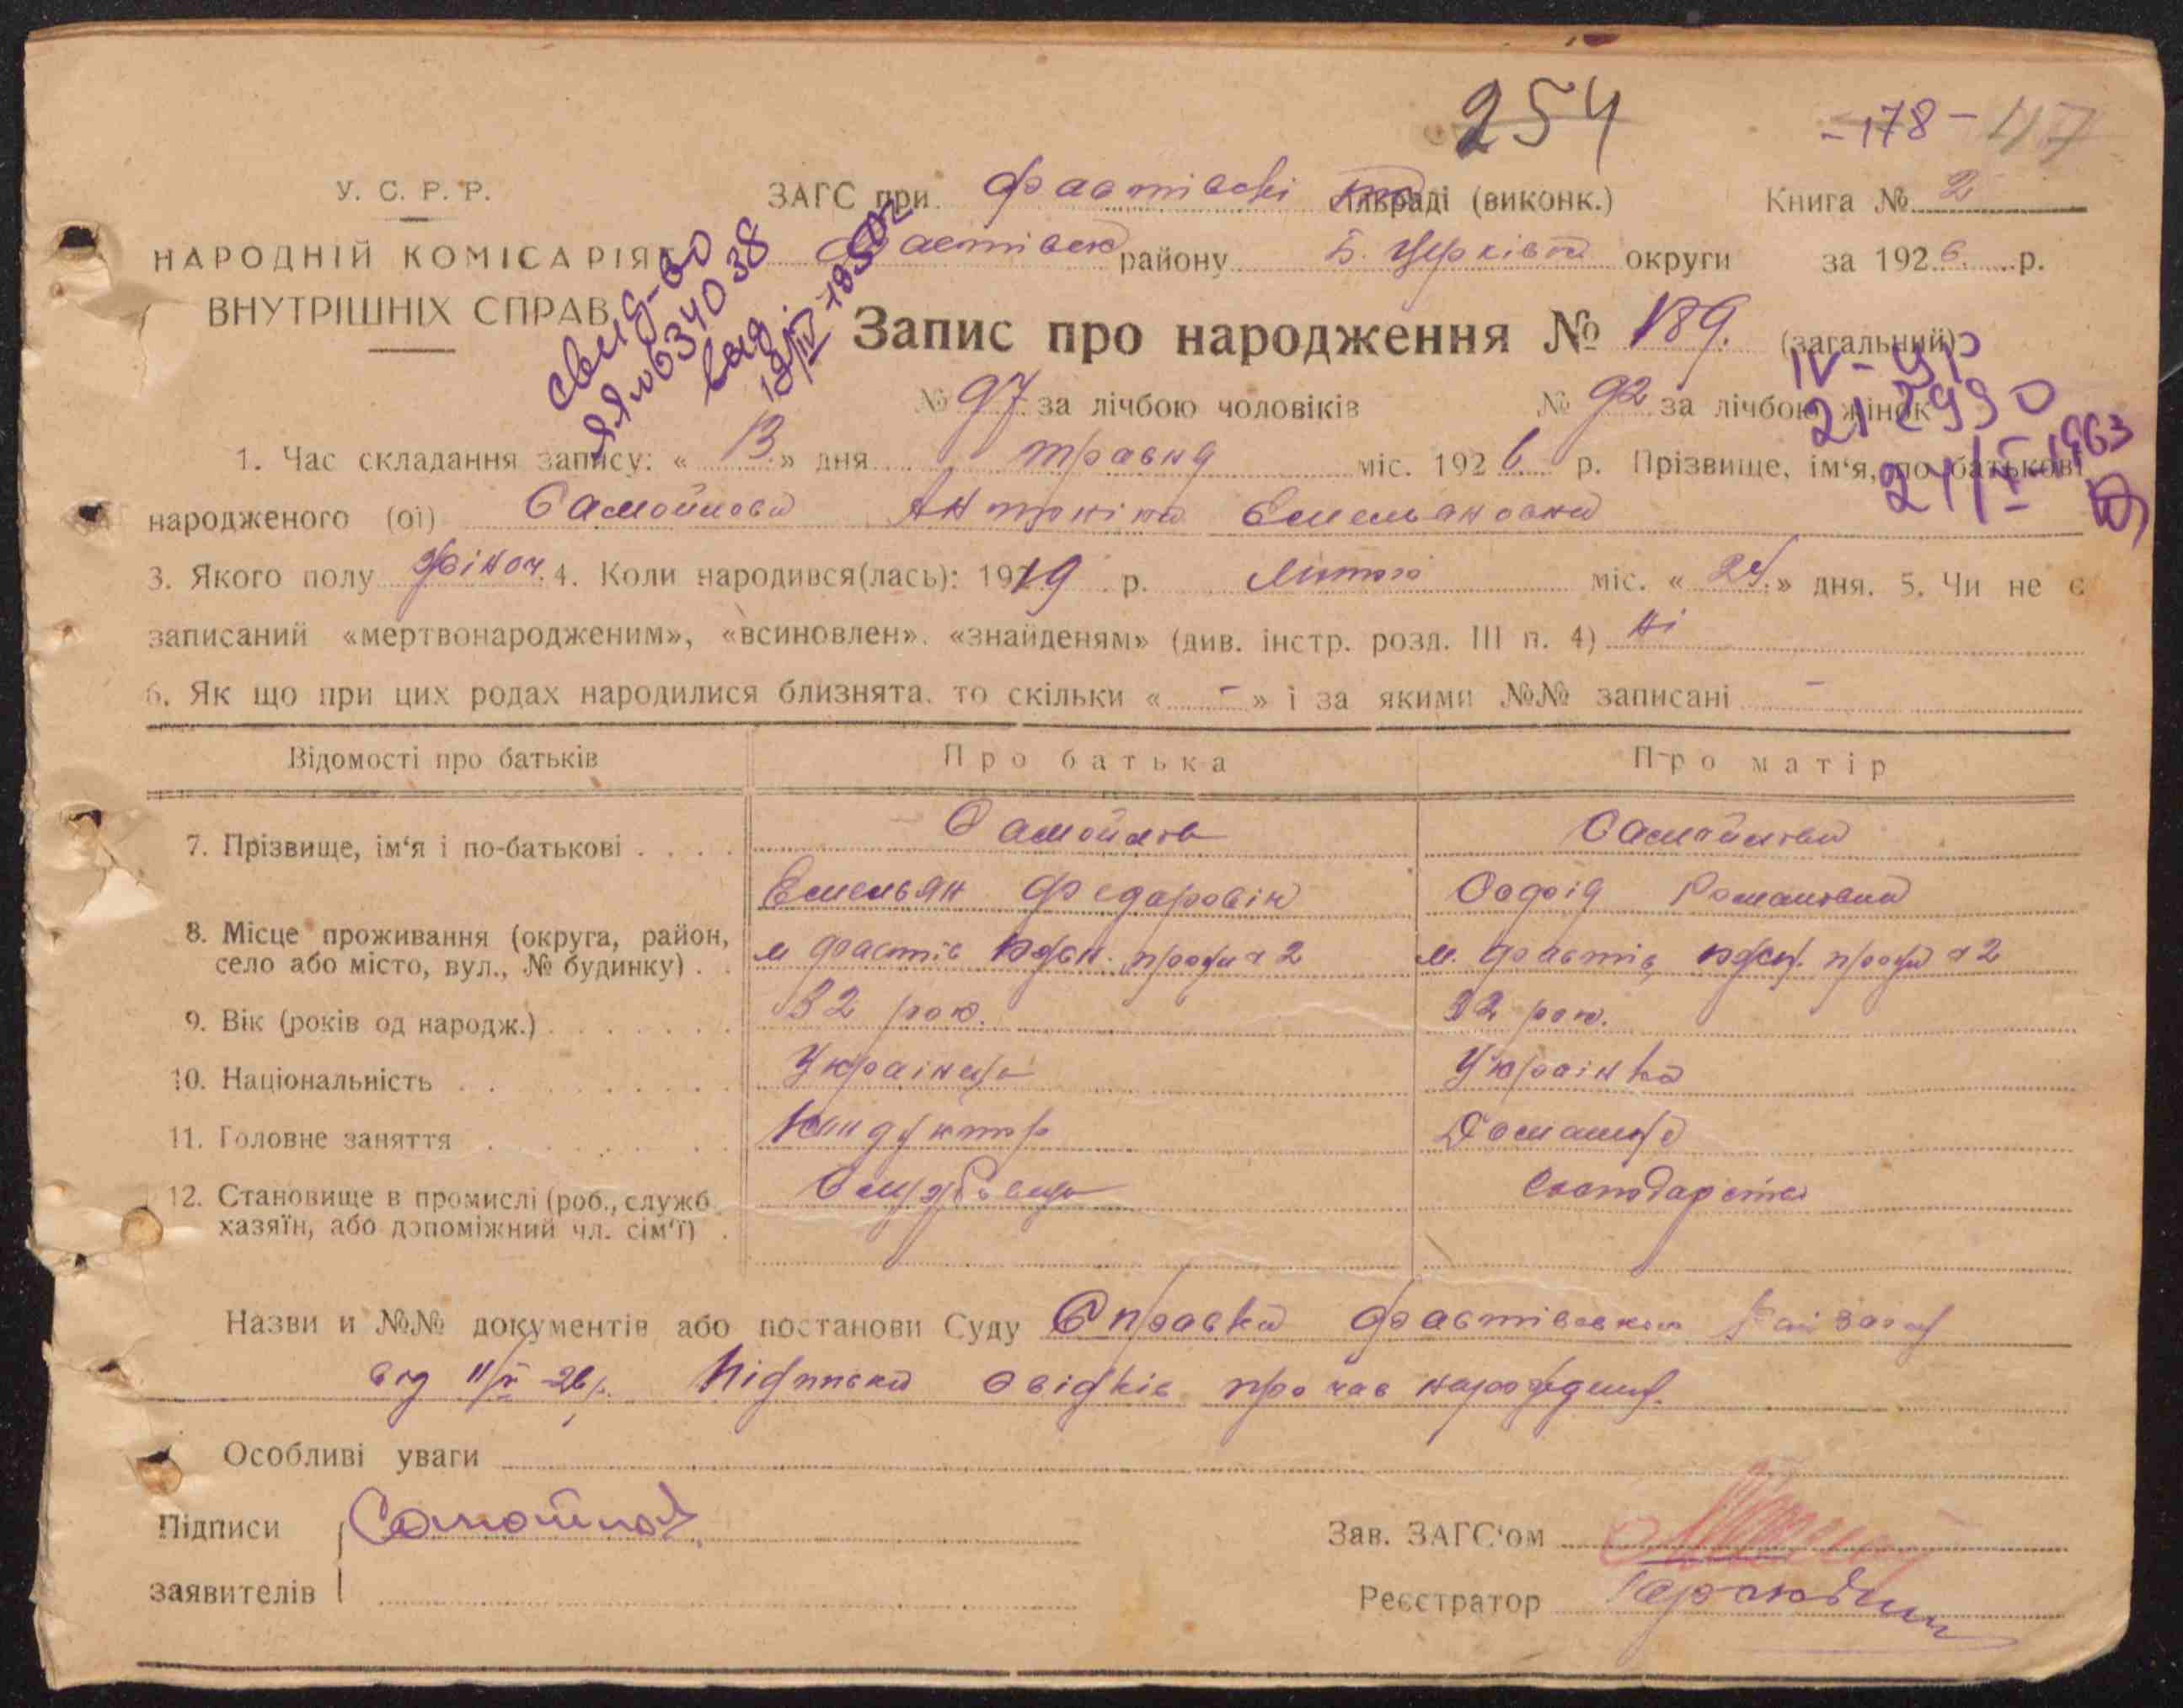 254
-178- 117
У. С. Р. Р.
ЗАГС при Фастівскі сільраді (виконк.) Книга № 2
НАРОДНІЙ КОМІСАРІЯТ
Фастівск району Б. Церківск округи за 1926 р.
ВНУТРІШНІХ СПРАВ
свид-во
ЯЯ № 634038
Запис про народження № 189. (загальний)
№ 97 за лічбою чоловіків № 92 за лічбою жінок
21 2990
1963
1. Час складання запису: « 13. » дня травня міс. 1926 р. Прізвище, ім'я, по батькові
народженого (ої) Самойлова Антоніна Емельяновна
3. Якого полу жіноч. 4. Коли народився(лась): 1919 р. Лютого міс. « 24. » дня. 5. Чи не є
записаний «мертвонародженим», «всиновлен». «знайденям» (див. інстр. розд. III п. 4) Ні
6. Як що при цих родах народилися близнята. то скільки « - » і за якими №№ записані -
Відомості про батьків Про батька Про матір
7. Прізвище, ім'я і по-батькові . . . . Самойлов Самойлова
Емельян Федоровін Софія Романовна
8. Місце проживання (округа, район, село або місто, вул., № будинку) . . м Фастів 2 м. Фастів 2
9. Вік (років од народж.) . . . . . . . 32 рок. 32 рок.
10. Національність . . . . . . . . . Українець Українка
11. Головне заняття . . . . . . . . Кондуктор Домашнє
12. Становище в промислі (роб., служб. Службовець Господарство
хазяїн, або допоміжний чл. сім'ї) .
Назви и №№ документів або постанови Суду Справка Фастівського Райзагсу
від 11/V-26 р. Підписка свідків про час народження.
Особливі уваги
Підписи Самойлов
Зав. ЗАГС'ом
заявителів
Реєстратор